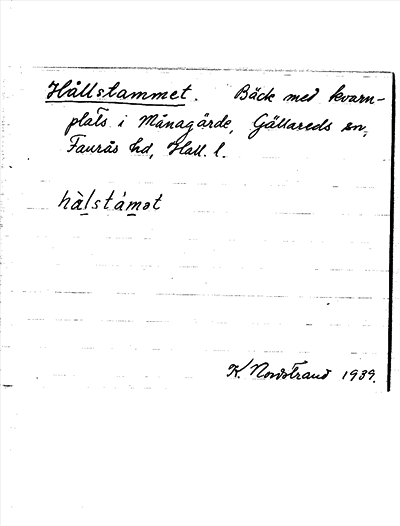 Hållstammet. Bäck med kvarn-
plats i Månagärde, Gällareds sn,
Faurås hd, Hall. l.
hålstámət
K. Nordstrand 1939.